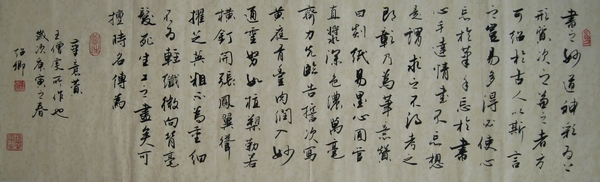 書之妙道神彩為上
形質次之兼之者方
可紹於古人以斯言
之豈易多得必使心
忘於筆手忘於書
心手達情書不忘想
是謂求之不得考之
即彰乃為筆意贊
曰剡紙易墨心圓管
直漿深色濃萬毫
齊力先臨告誓次寫
黃庭骨豐肉潤入妙
通靈努如植槊勒若
橫釘開張鳳翼聳
擢芝英粗不為重細
不為輕纖微向背毫
髮死生工之盡矣可
擅時名傳為
筆意贊
王僧虔所作也
歲次庚寅之春